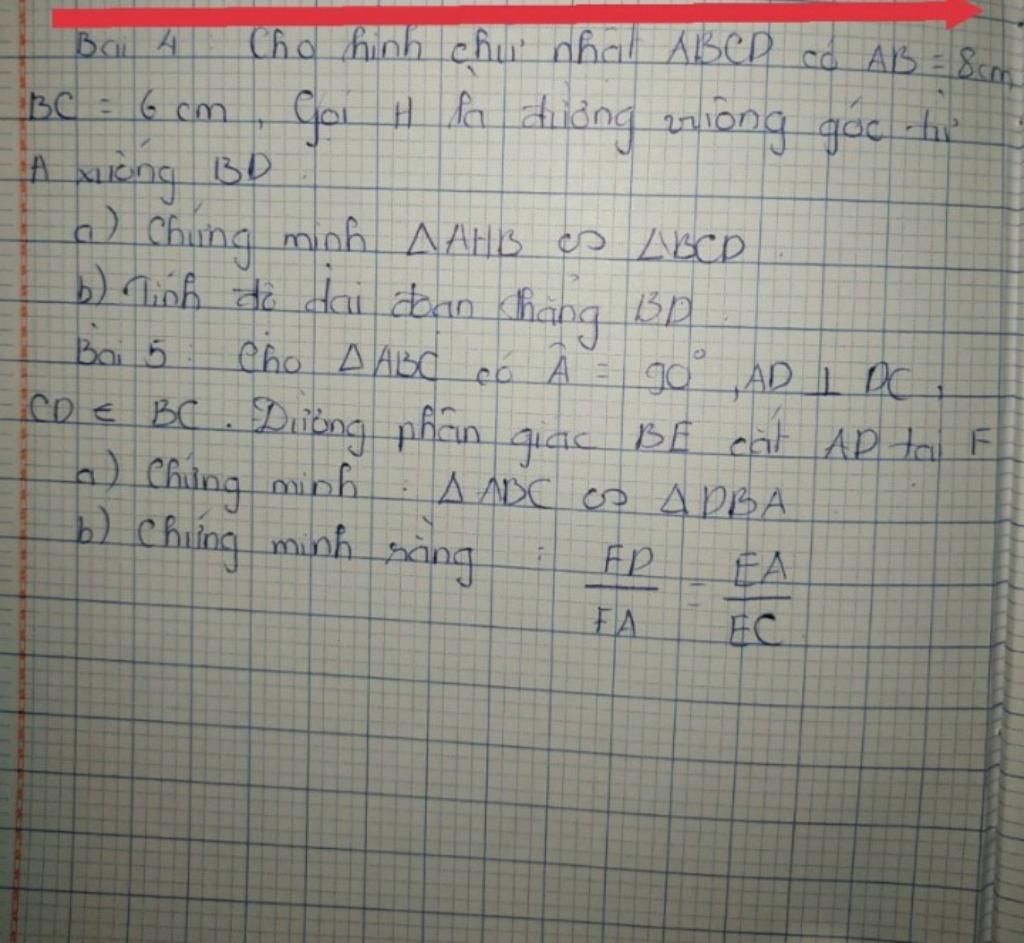 Bài 4 : Cho hình chữ nhật ABCD có AB = 8cm
BC = 6 cm , Gọi H là đường vuông góc từ
A xuống BD .
a) Chứng minh ΔAHB ∽ ΔBCD .
b) Tính độ dài đoạn thẳng BD
Bài 5 : Cho ΔABC có Â = 90° , AD ⊥ DC ,
CD ∈ BC . Đường phân giác BE cắt AD tại F
a) Chứng minh : Δ ABC ∽ Δ DBA
b) Chứng minh rằng : FD/FA = EA/EC